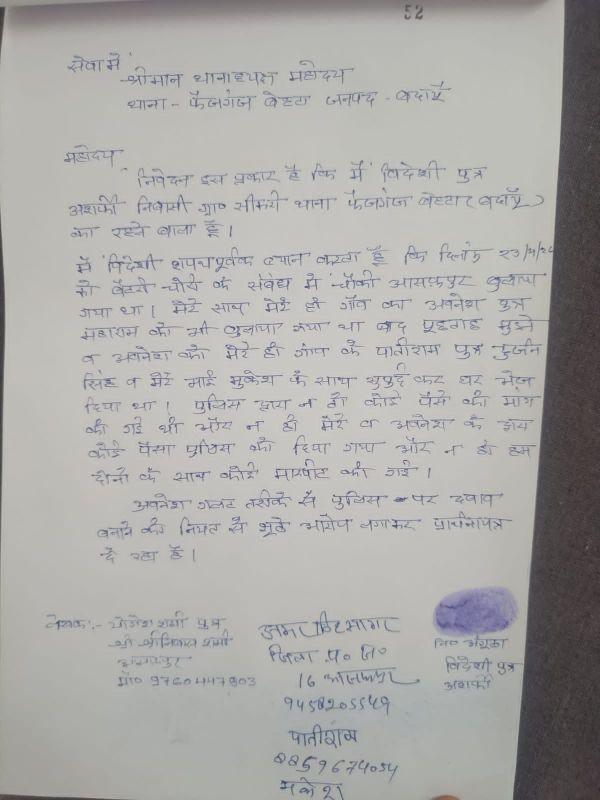 52
सेवा में
श्रीमान थानाध्यक्ष महोदय
थाना - फैजगंज बेहटा जनपद - बदायूँ
महोदय
निवेदन इस प्रकार है कि मैं विदेशी पुत्र
अशर्फी निवासी ग्रा० सीकरी थाना फैजगंज बेहटा (बदायूँ)
का रहने वाला हूँ।
मैं विदेशी शपथपूर्वक ब्यान करता हूँ कि दिनांक 23/4/24
को बैटरी चोरी के संबंध में चौकी आसफपुर बुलाया
गया था। मेरे साथ मेरे ही गाँव का अवनेश पुत्र
महाराम को भी बुलाया गया था बाद पूछताछ मुझे
व अवनेश को मेरे ही गांव के पातीराम पुत्र दुर्जन
सिंह व मेरे भाई मुकेश के साथ सुपुर्द कर घर भेज
दिया था। पुलिस द्वारा न ही कोई पैसे की मांग
की गई थी और न ही मेरे व अवनेश के द्वारा
कोई पैसा पुलिस को दिया गया और न ही हम
दोनों के साथ कोई मारपीट की गई।
अवनेश गलत तरीके से पुलिस पर दबाव
बनाने की नियत से झूठे आरोप लगाकर प्रार्थनापत्र
दे रहा है।
लेखक:- योगेश शर्मा पुत्र
श्री श्रीनिवास शर्मा
आसफपुर
मो० 9760447903
जिला पं० स०
16 आसफपुर
9458205549
पातीराम
8859674054
मुकेश
नि० अंगूठा
विदेशी पुत्र
अशर्फी